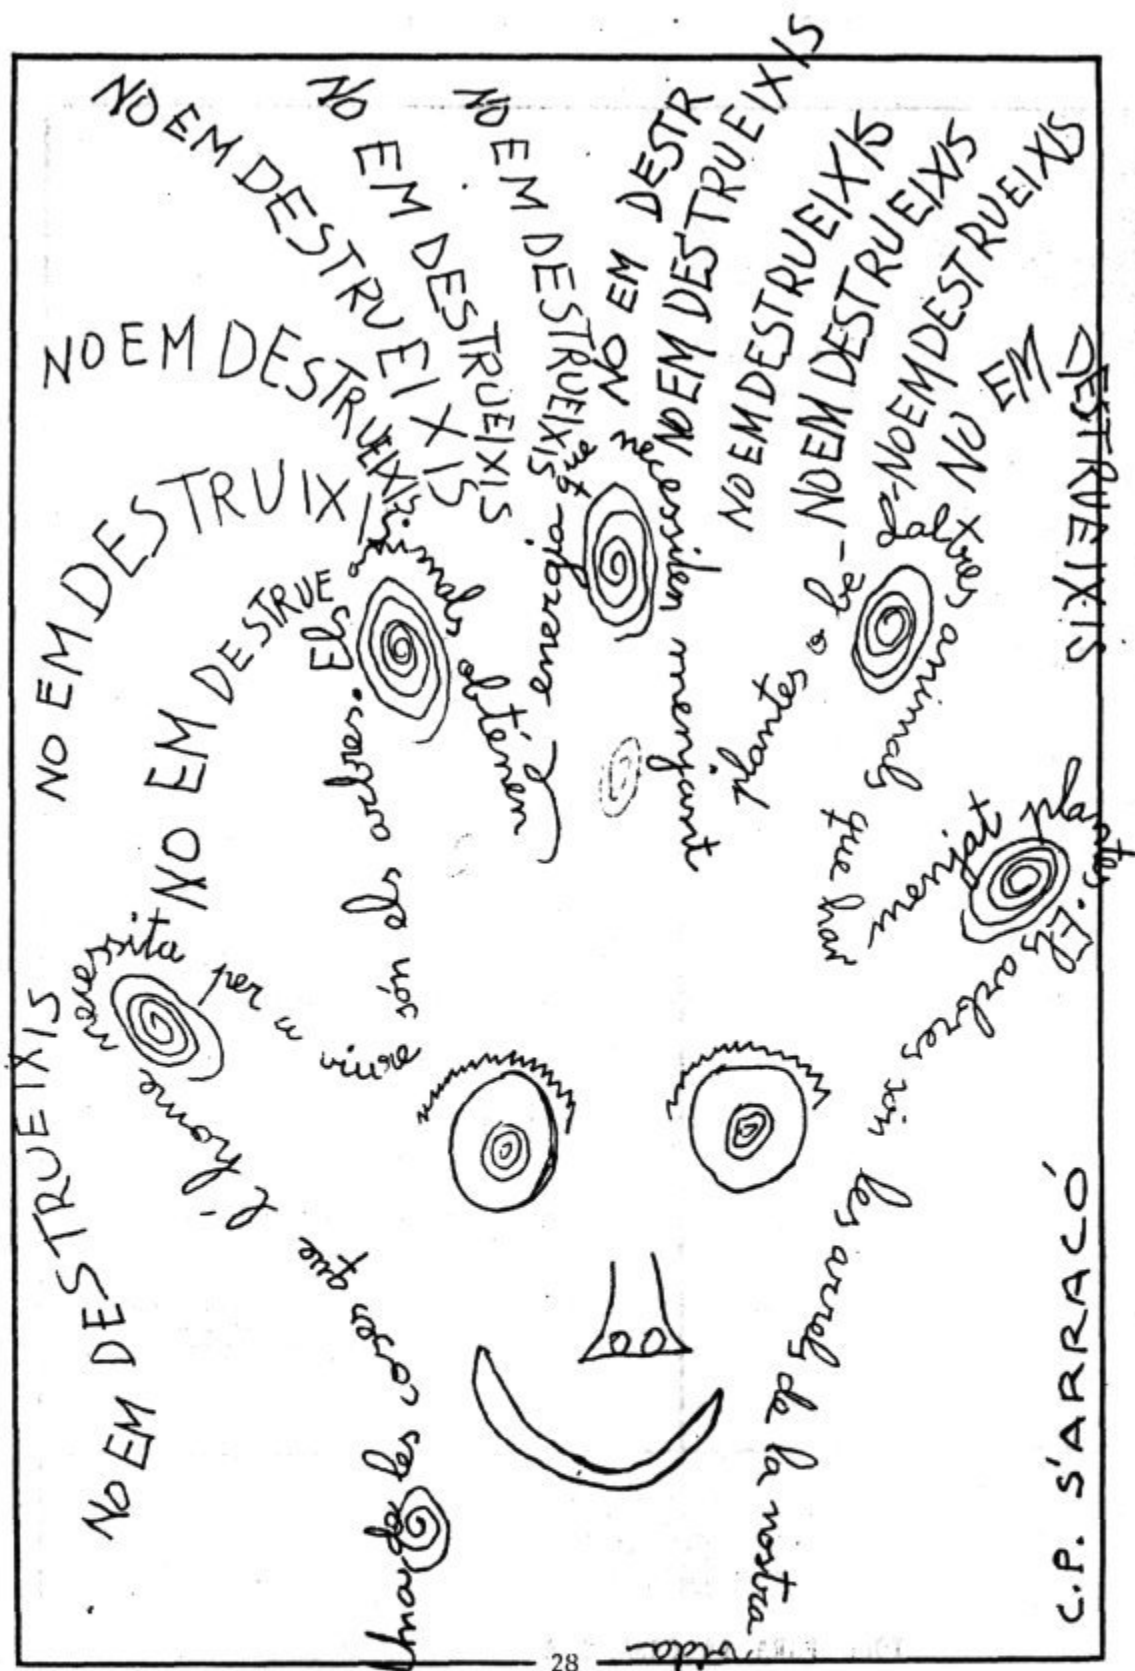 NO EM DESTRUEIXIS
NO EM DESTRUIXI
NO EM DESTRUE
NO EM DESTRUEIXIS
NO EM DESTRUEIXIS
NO EM DESTRUEIXIS
NO EM DESTRUEIXIS
NO EM DESTR
NO EM DESTRUEIXIS
NO EM DESTRUEIXIS
NO EM DESTRUEIXIS
NO EM DESTRUEIXIS
NO EM DESTRUEIXIS
Una de les cóses que l'home necessita per a viure són els arbres. Els animals obténen l'energia que necessiten menjant plantes o bé d'altres animals que han menjat plantes. Els arbres són les arrels de la nostra vida
C.P. S'ARRACÓ
28